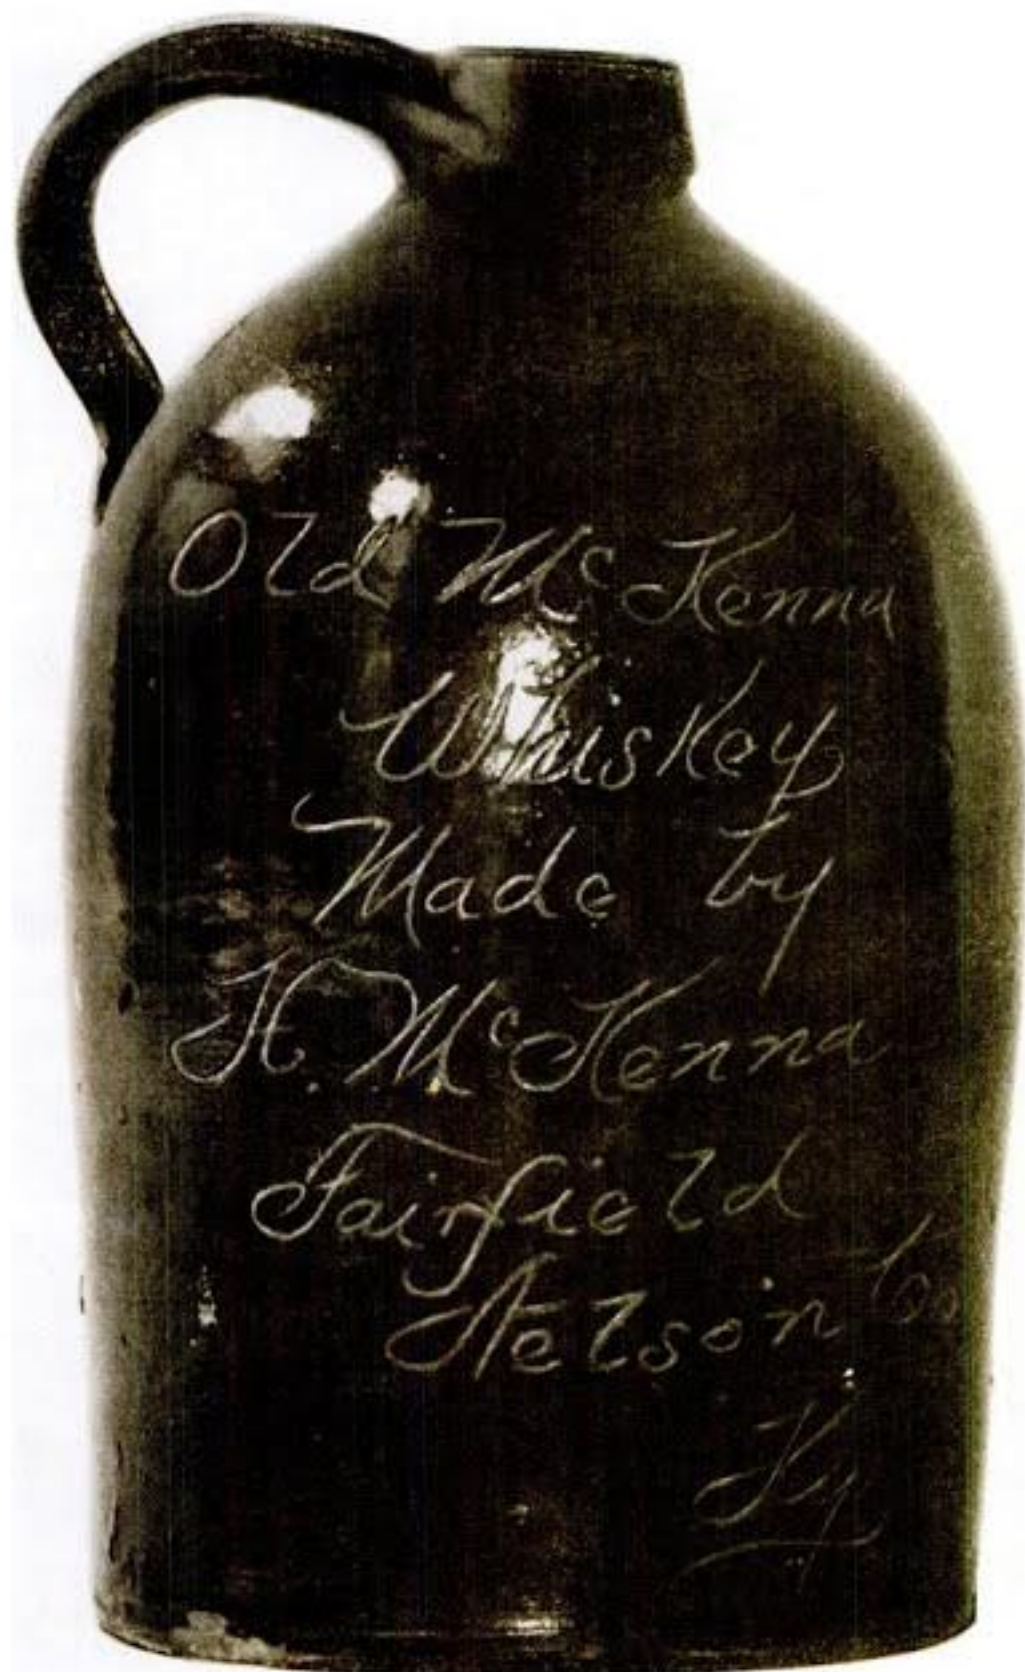 Old McKenna
Whiskey
Made by
H. McKenna
Fairfield
Nelson Co
Ky